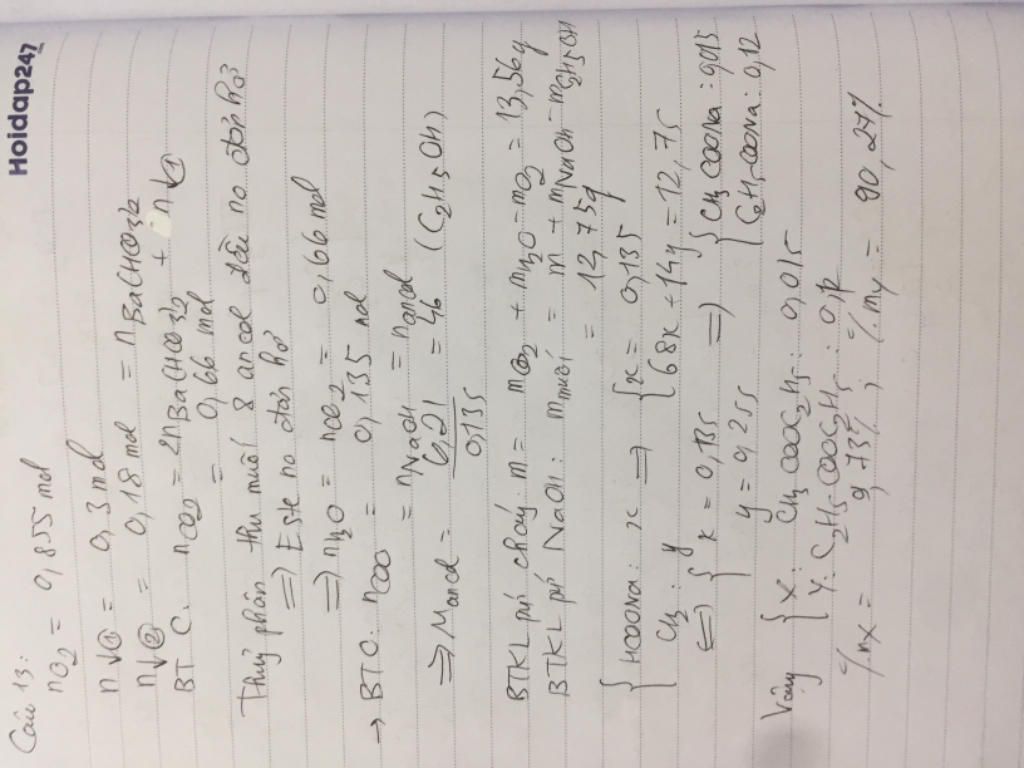 Hoidap247
Câu 13:
nO2 = 0,855 mol
n↓① = 0,3 mol
n↓② = 0,18 mol = nBa(HCO3)2
BT C. nCO2 = 2nBa(HCO3)2 + n↓①
= 0,66 mol
Thuỷ phân thu muối & ancol đều no đơn hở
⇒ Este no đơn hở
⇒ nH2O = nCO2 = 0,66 mol
→ BTO: nCOO = 0,135 mol
= nNaOH = nancol
⇒ Mancol = 6,21/0,135 = 46 (C2H5OH)
BTKL pứ cháy: m = mCO2 + mH2O - mO2 = 13,56g
BTKL pứ NaOH: mmuối = m + mNaOH - mC2H5OH
= 12,75g
{ HCOONa: x ⇒ { x = 0,135
CH2: y { 68x + 14y = 12,75
⇔ { x = 0,135 ⇒ { CH3COONa: 0,015
y = 0,255 { C2H5COONa: 0,12
Vậy { X: CH3COOC2H5: 0,015
Y: C2H5COOC2H5: 0,12
%mX = 9,73%; %mY = 90,27%